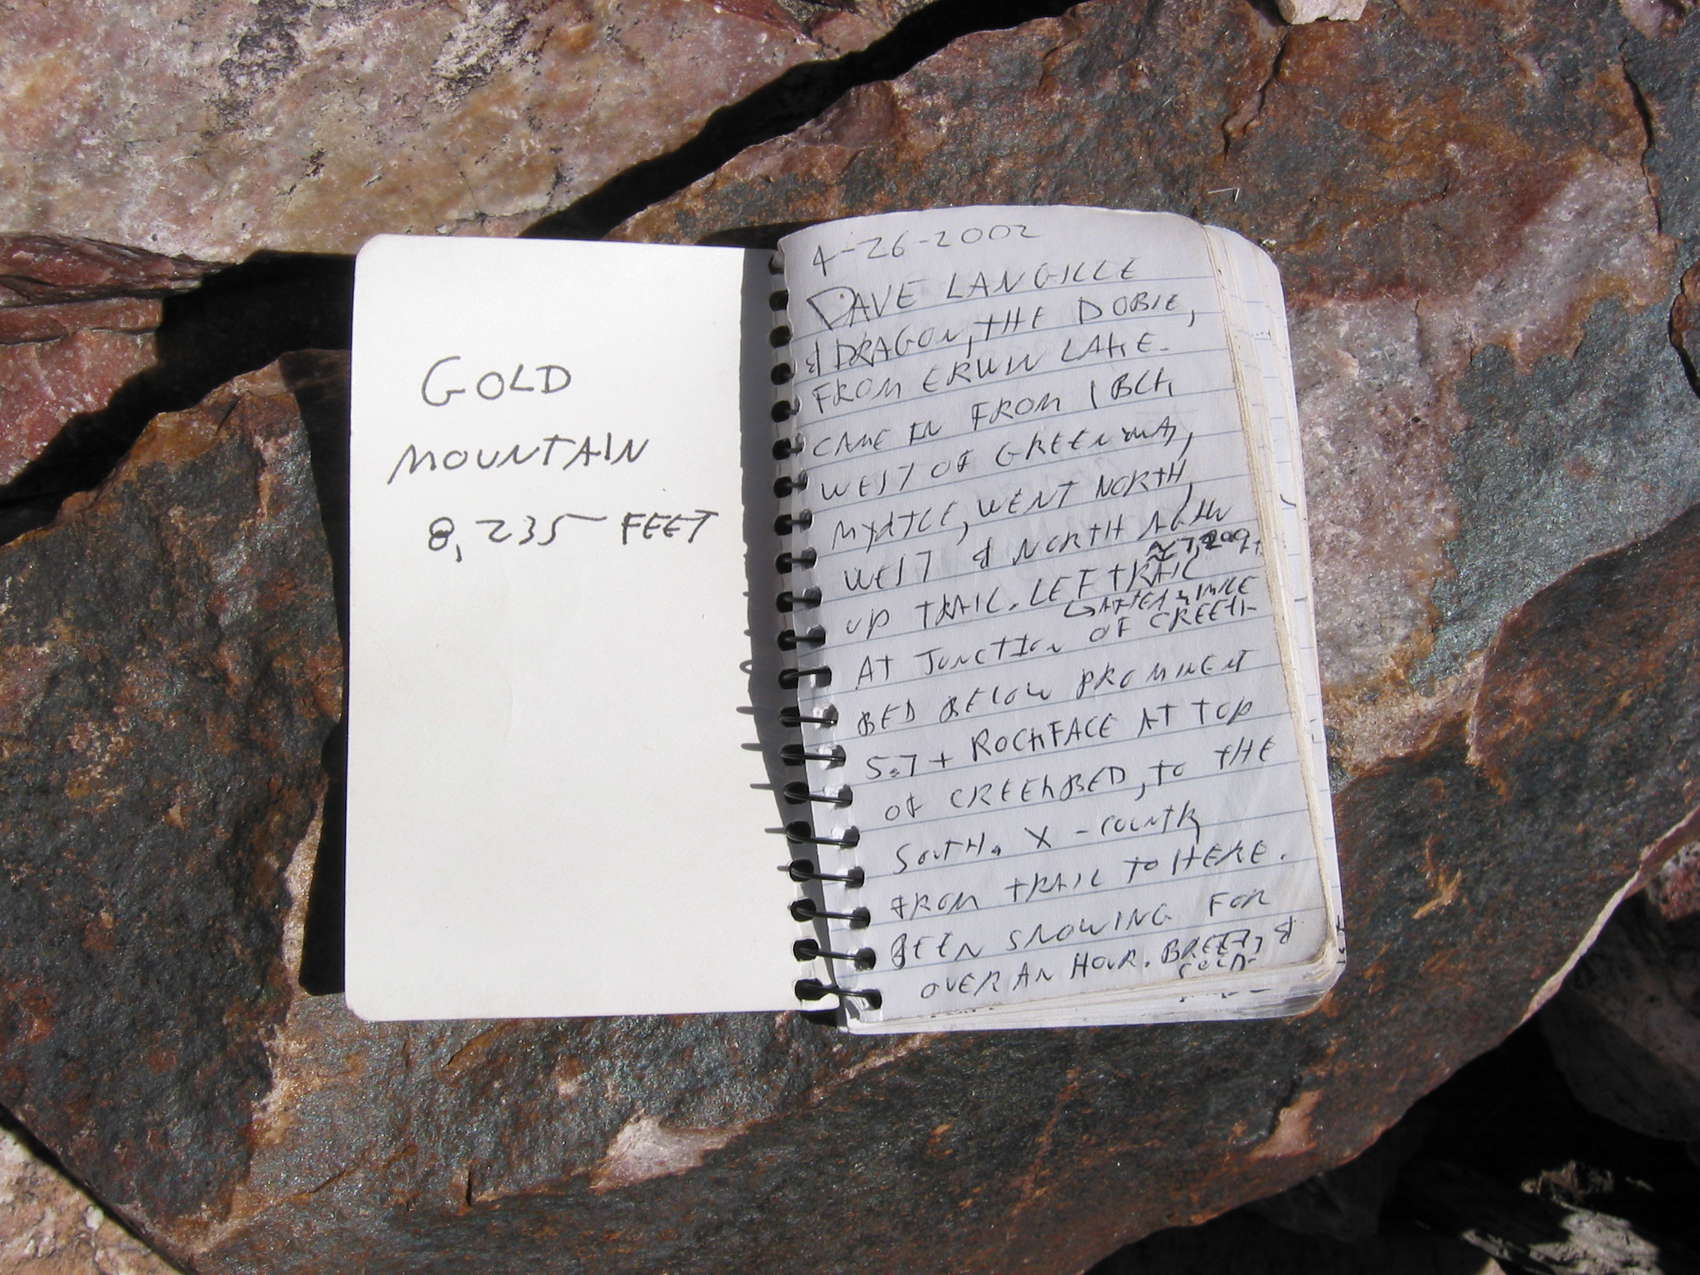 GOLD
MOUNTAIN
8,235 FEET
4-26-2002
DAVE LANGILLE
& DRAGON, THE DOBIE,
FROM ERWIN LAKE.
CAME IN FROM 1 BLK,
WEST OF GREENWAY,
MYRTLE, WENT NORTH,
WEST & NORTH AGAIN
≈ 7,200 ft
UP TRAIL. LEFT TRAIL
↳ AFTER ½ MILE
AT JUNCTION OF CREEK-
BED BELOW PROMINENT
5.7+ ROCKFACE AT TOP
OF CREEKBED, TO THE
SOUTH. X-COUNTRY
FROM TRAIL TO HERE.
BEEN SNOWING FOR
OVER AN HOUR. BREEZY &
COLD-